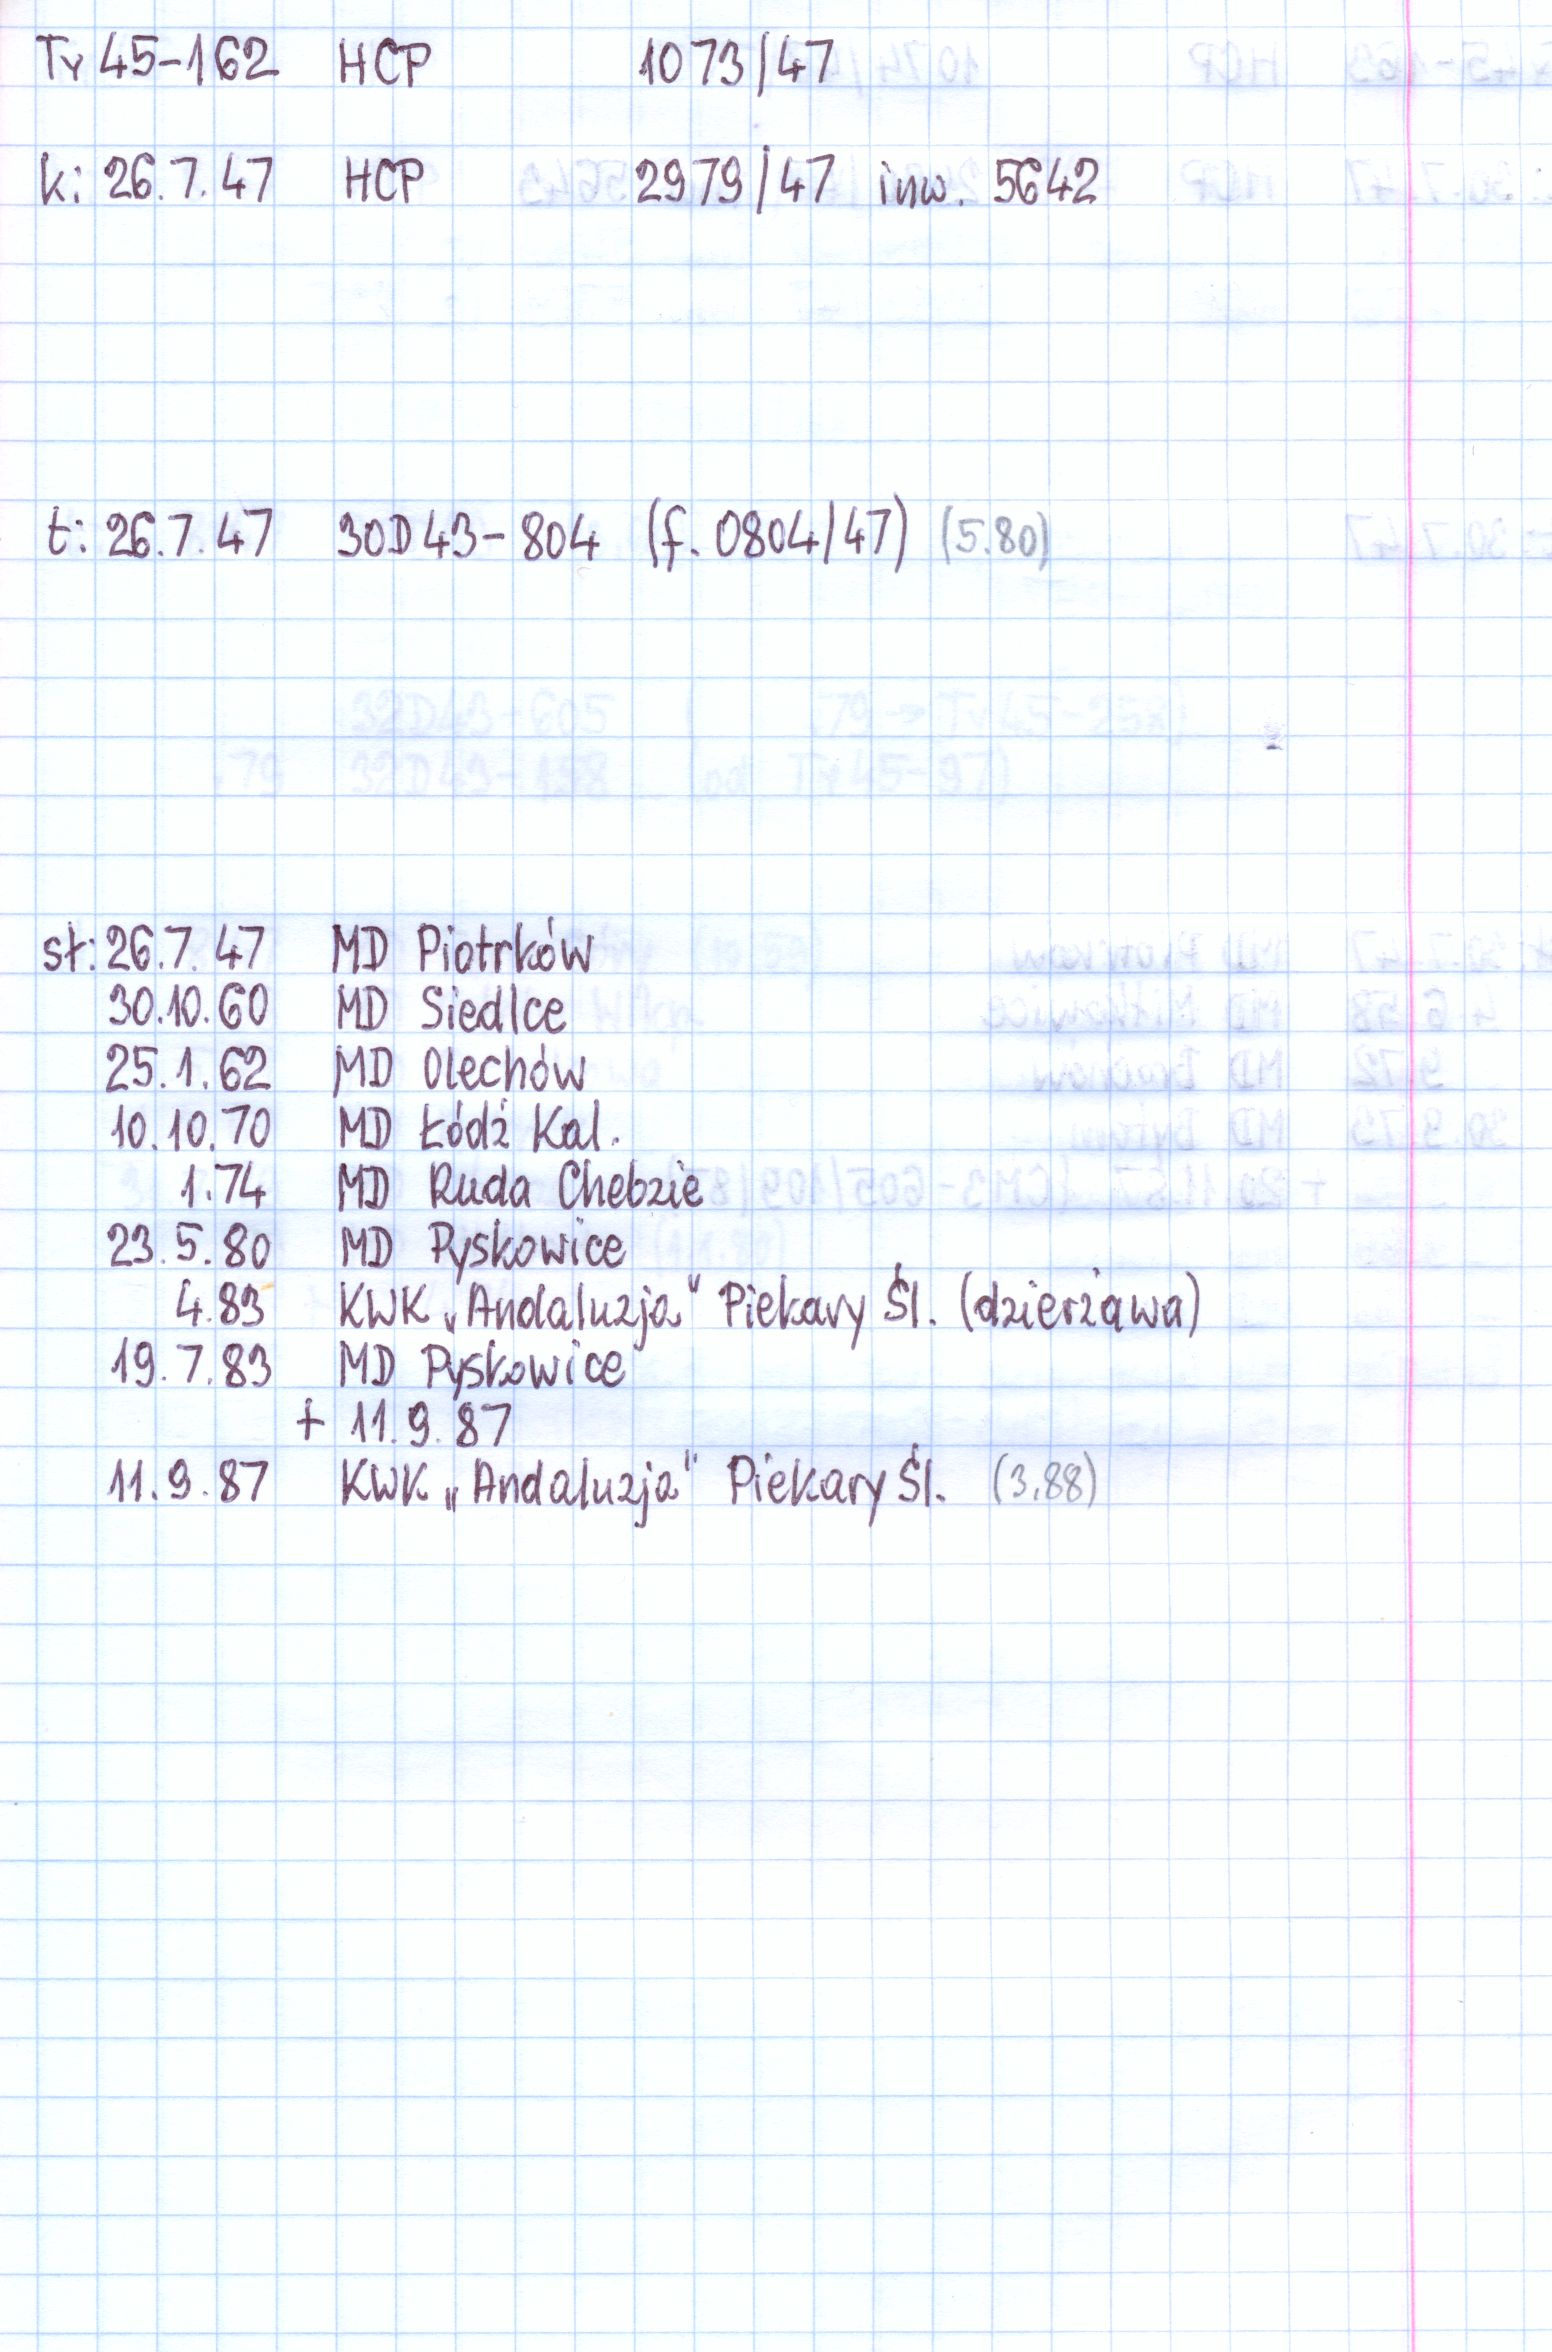 Ty 45-162 HCP 1073/47
k: 26.7.47 HCP 2979/47 inw. 5642
t: 26.7.47 30D43-804 (f. 0804/47) (5.80)
sł: 26.7.47 MD Piotrków
30.10.60 MD Siedlce
25.1.62 MD Olechów
10.10.70 MD Łódź Kal.
1.74 MD Ruda Chebzie
23.5.80 MD Pyskowice
4.83 KWK „Andaluzja" Piekary Śl. (dzierżawa)
19.7.83 MD Pyskowice
+ 11.9.87
11.9.87 KWK „Andaluzja" Piekary Śl. (3.88)